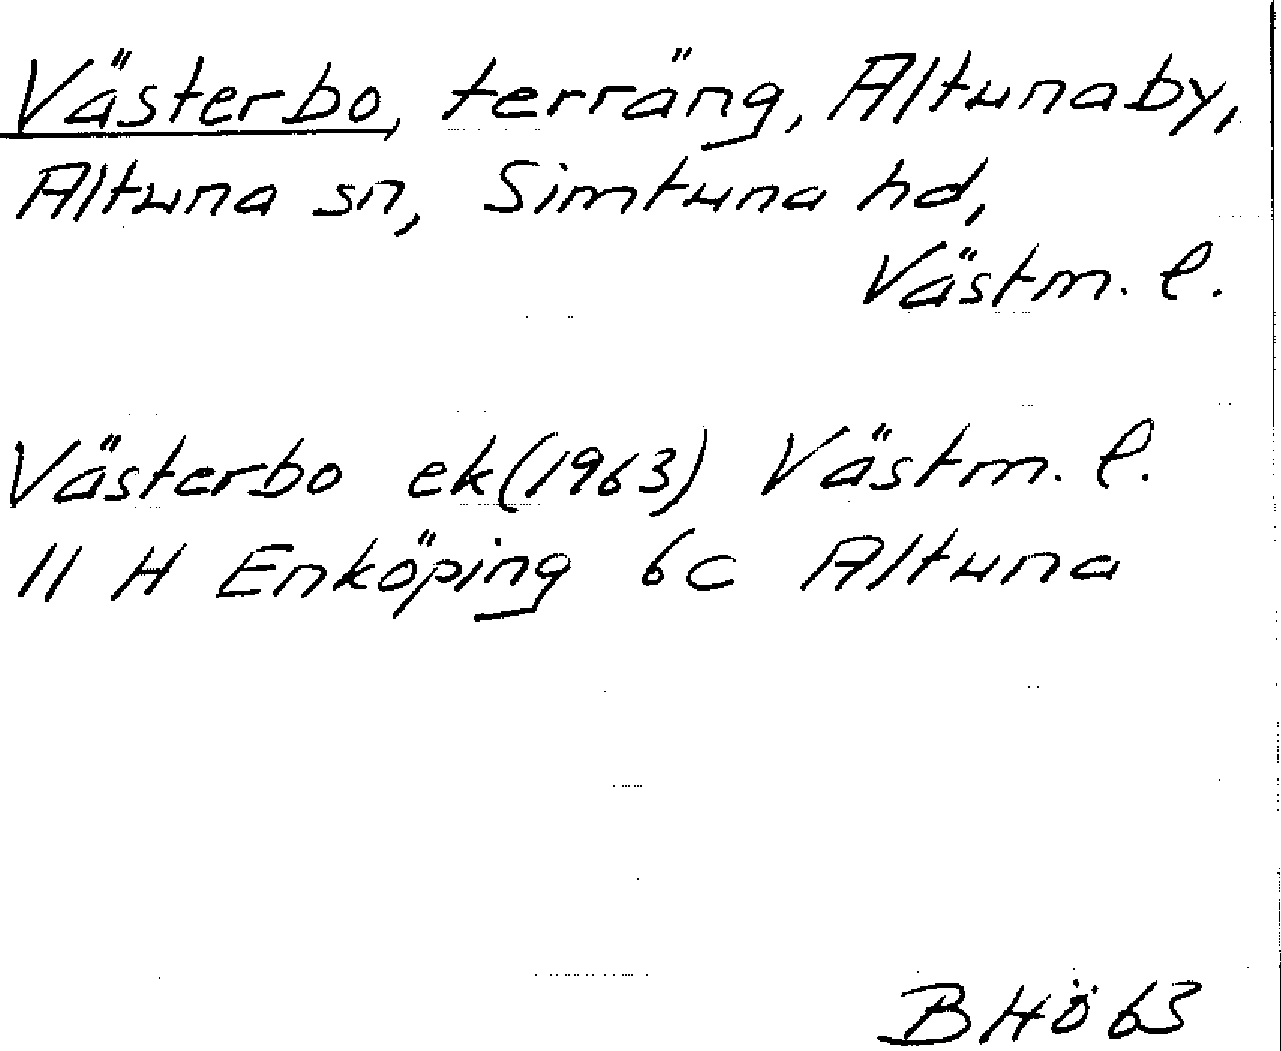 Västerbo, terräng, Altunaby,
Altuna sn, Simtuna hd,
Västm. l.
Västerbo ek (1963) Västm. l.
11 H Enköping 6c Altuna
BHö 63